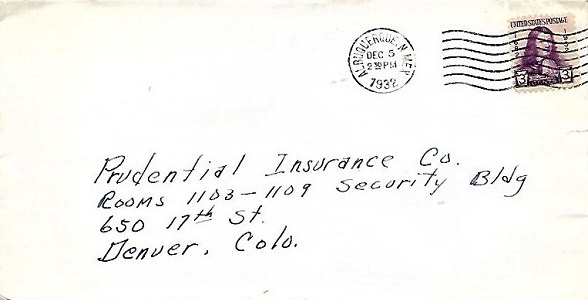 UNITED STATES POSTAGE
1682
1932
3 3
ALBUQUERQUE, N. MEX.
DEC 5
2 30 PM
1932
Prudential Insurance Co.
Rooms 1103-1109 Security Bldg
650 17th St.
Denver, Colo.